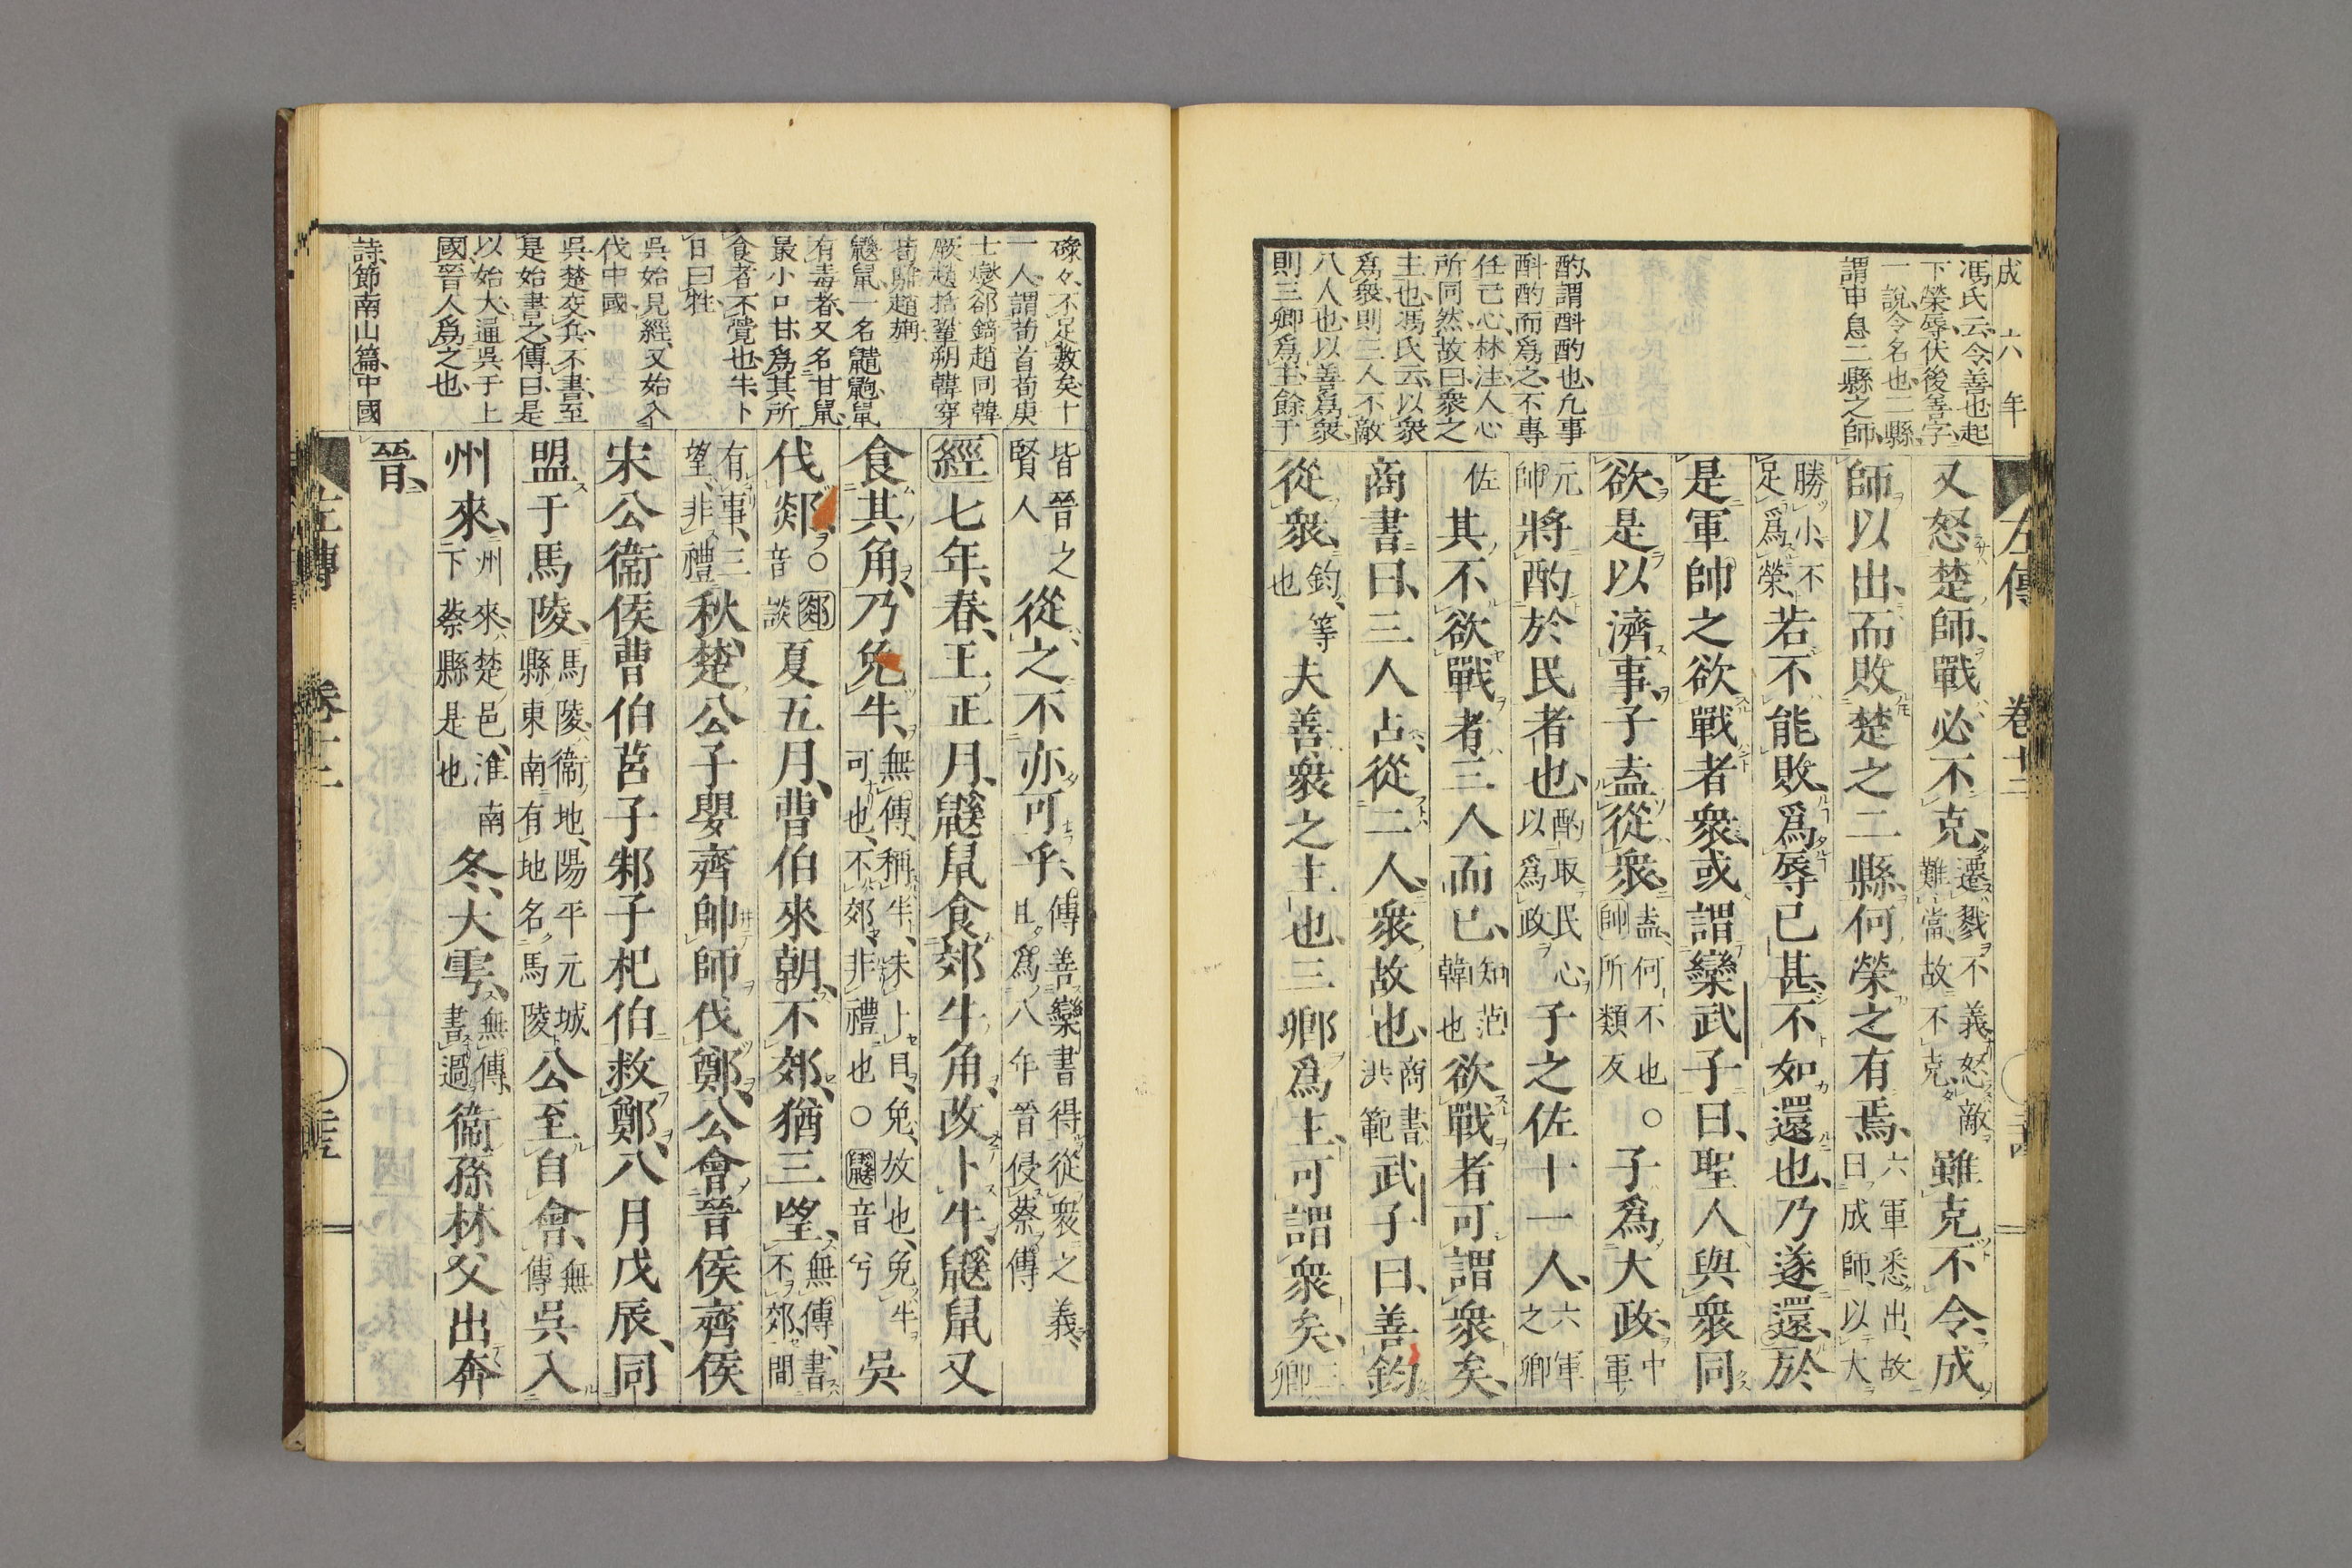 成六年
馮氏云令善也起
下榮辱伏後善字
一說令名也二縣
謂申息二縣之師
酌謂斟酌也凡事
斟酌而爲之不專
任己心林注人心
所同然故曰衆之
主也馮氏云以衆
爲衆則三人不敵
八人也以善爲衆
則三卿爲主餘于
左傳 卷十二 二十四
又怒楚師戰必不克遷戮不義怒敵難當故不克雖克不令成
師以出而敗楚之二縣何榮之有焉六軍悉出故曰成師以大
勝小不足爲榮若不能敗爲辱已甚不如還也乃遂還於
是軍帥之欲戰者衆或謂欒武子曰聖人與衆同
欲是以濟事子盍從衆盍何不也○帥所類反子爲大政中軍
元帥將酌於民者也酌取民心以爲政子之佐十一人六軍之卿
佐其不欲戰者三人而已知范韓也欲戰者可謂衆矣
商書曰三人占從二人衆故也商書洪範武子曰善鈞
從衆鈞等也夫善衆之主也三卿爲主可謂衆矣三卿
碌々不足數矣十
一人謂荀首荀庚
士燮郤錡趙同韓
厥趙括鞏朔韓穿
荀騅趙旃
鼷鼠一名
有毒者又名甘鼠
最小口甘爲其所
食者不覺也牛卜
日曰牲
吳始見經又始入
伐中國
吳楚交兵不書至
是始書之傳曰是
以始大通吳于上
國晉人爲之也
詩節南山篇中國
皆晉之賢人從之不亦可乎傳善欒書得從衆之義且爲八年晉侵蔡傳
經七年春王正月鼷鼠食郊牛角改卜牛鼷鼠又
食其角乃免牛無傳稱牛未卜日免放也免牛可也不郊非禮也○鼷音兮吳
伐郯○郯音談夏五月曹伯來朝不郊猶三望無傳書不郊間
有事三望非禮秋楚公子嬰齊帥師伐鄭公會晉侯齊侯
宋公衞侯曹伯莒子邾子杞伯救鄭八月戊辰同
盟于馬陵馬陵衞地陽平元城縣東南有地名馬陵公至自會無傳吳入
州來州來楚邑淮南下蔡縣是也冬大雩無傳書過衞孫林父出奔
晉
左傳 卷十二 二十五